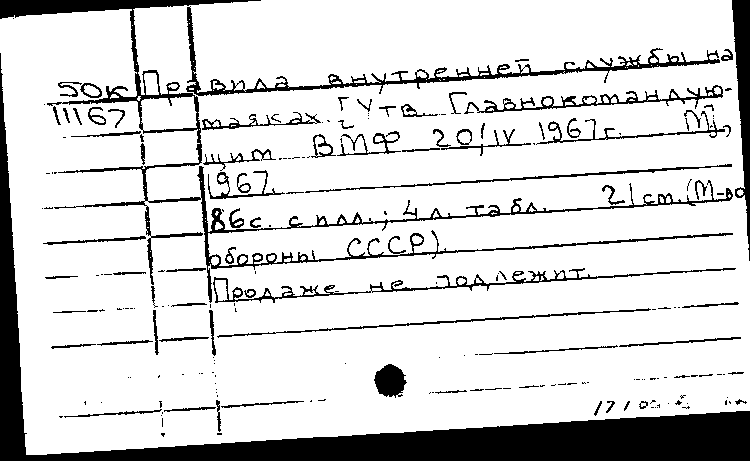 50к Правила внутренней службы на
11167 маяках. [Утв. Главнокомандую-
щим ВМФ 20/IV 1967г. М],
1967.
86с. с илл.; 4 л. табл. 21 см. (М-во
обороны СССР).
Продаже не подлежит.